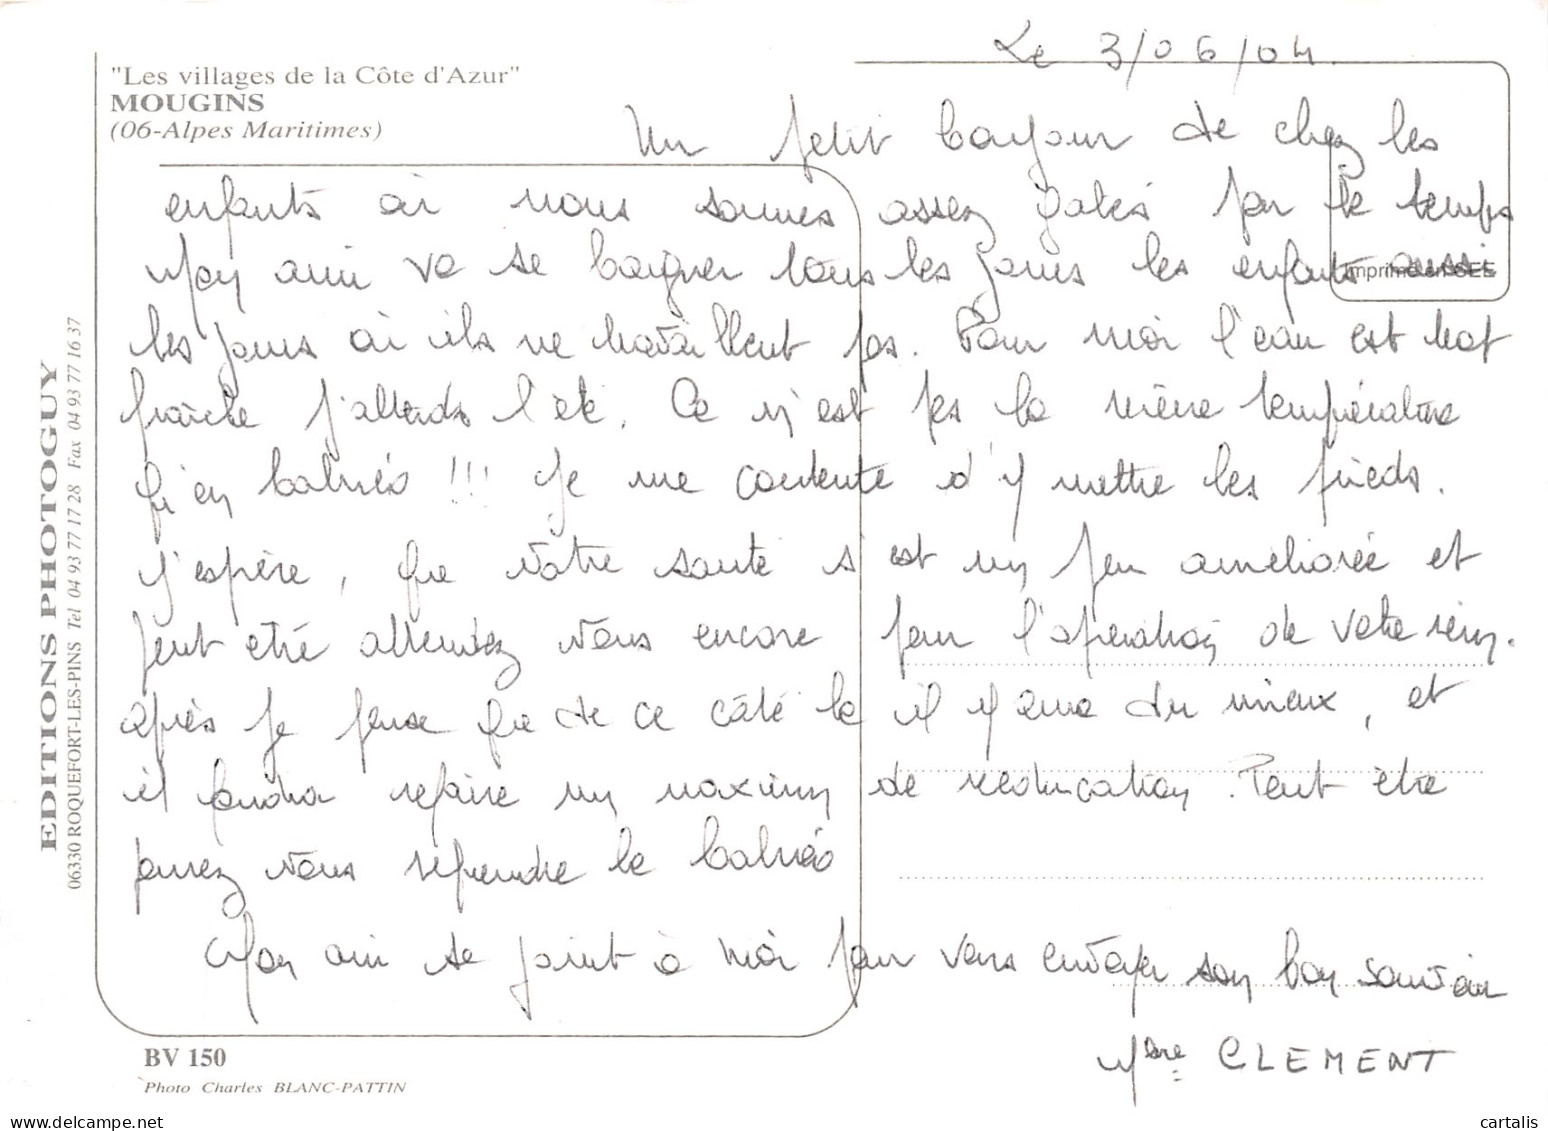 "Les villages de la Côte d'Azur"
MOUGINS
(06-Alpes Maritimes)
Le 3/06/04.
Un petit bonjour de chez les
enfants où nous sommes assez gatés par le temps
Mon ami va se baigner tous les jours les enfants aussi
Imprimé en CEE
les jours où ils ne travaillent pas. Pour moi l'eau est trop
fraîche j'attends l'été. Ce n'est pas la même température
qu'en balnéo !!! Je me contente d'y mettre les pieds.
J'espère, que votre santé s'est un peu améliorée et
peut etre attendez vous encore pour l'opération de votre rein.
après je pense que de ce côté la il y aura du mieux, et
il faudra refaire un maximum de rééducation. Peut être
pourrez vous reprendre la balnéo
Mon ami se joint à moi pour vous envoyer son bon souvenir
Mme CLEMENT
EDITIONS PHOTOGUY
06330 ROQUEFORT-LES-PINS Tel 04 93 77 17 28 Fax 04 93 77 16 37
BV 150
Photo Charles BLANC-PATTIN
cartalis